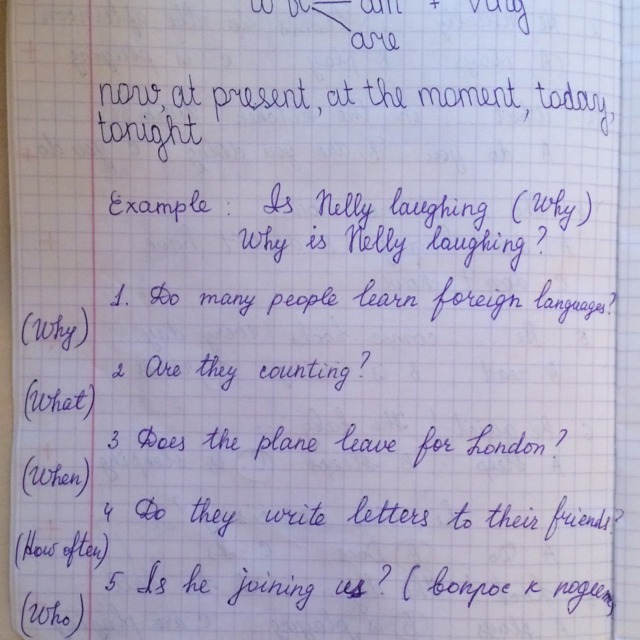 to be am + Ving
are
now, at present, at the moment, today,
tonight
Example: Is Nelly laughing (Why)
Why is Nelly laughing?
1. Do many people learn foreign languages?
(Why)
2 Are they counting?
(What)
3 Does the plane leave for London?
(When)
4 Do they write letters to their friends?
(How often)
5 Is he joining us? (вопрос к
(Who)